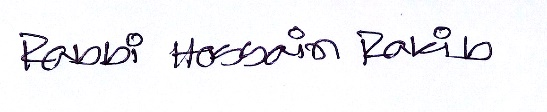 Rabbi Hossain Rakib